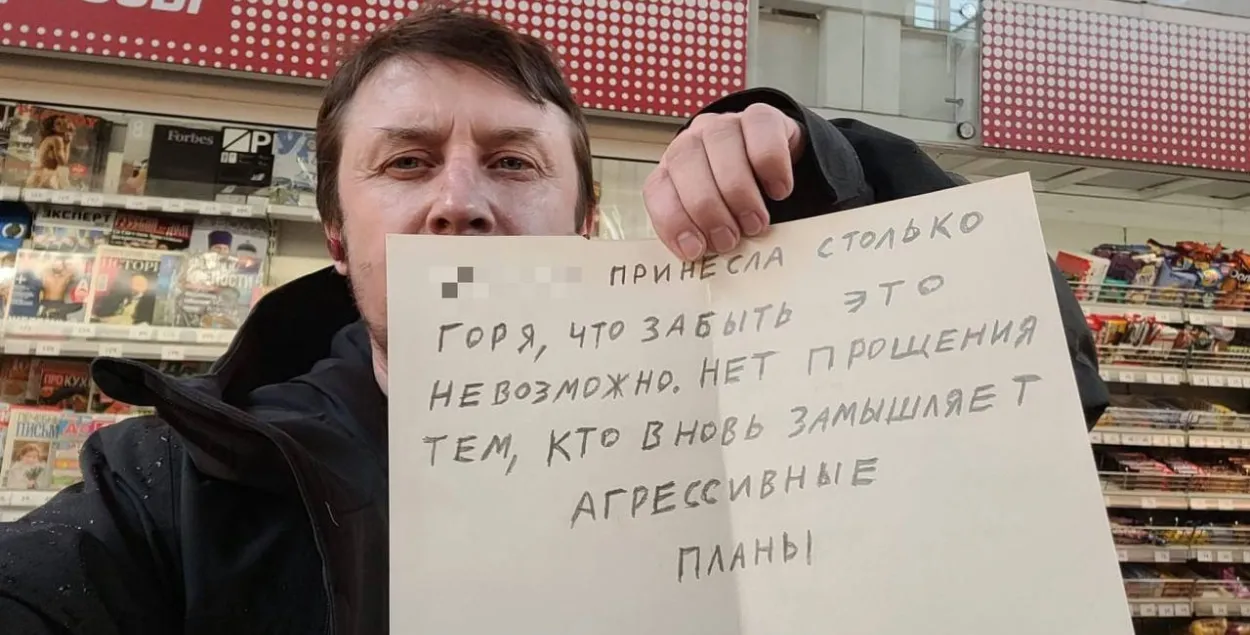 Forbes
ЭКСПЕРТ
ПРИНЕСЛА СТОЛЬКО
ГОРЯ, ЧТО ЗАБЫТЬ ЭТО
НЕВОЗМОЖНО. НЕТ ПРОЩЕНИЯ
ТЕМ, КТО ВНОВЬ ЗАМЫШЛЯЕТ
АГРЕССИВНЫЕ
ПЛАНЫ